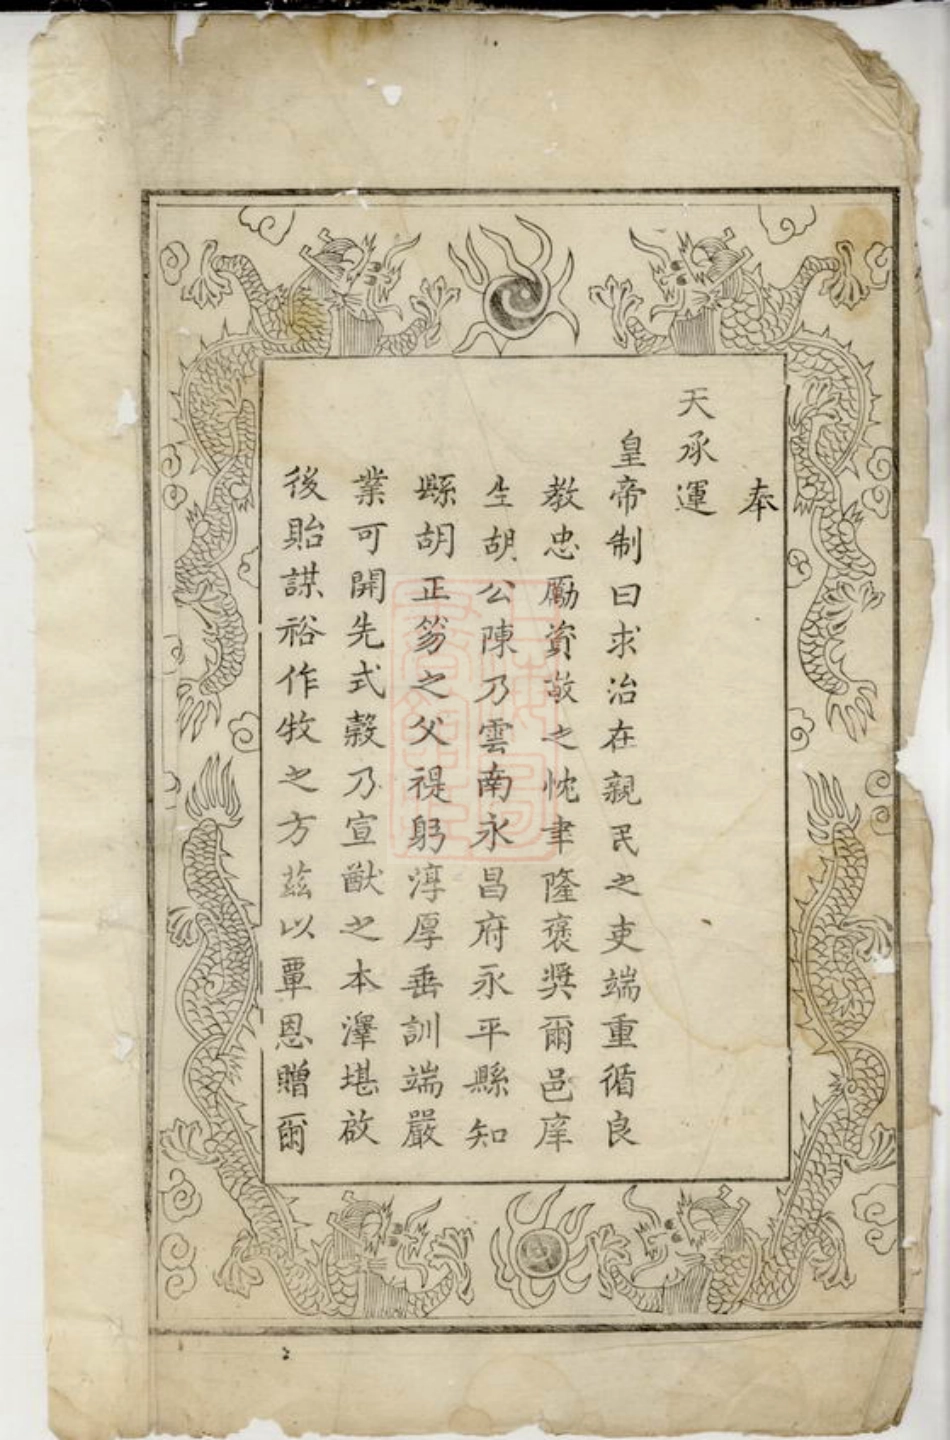 奉
天承運
皇帝制曰求治在親民之吏端重循良
教忠勵資敬之忱聿隆褒奬爾邑庠
生胡公陳乃雲南永昌府永平縣知
縣胡正笏之父禔躬淳厚垂訓端嚴
業可開先式穀乃宣猷之本澤堪啟
後貽謀裕作牧之方茲以覃恩贈爾